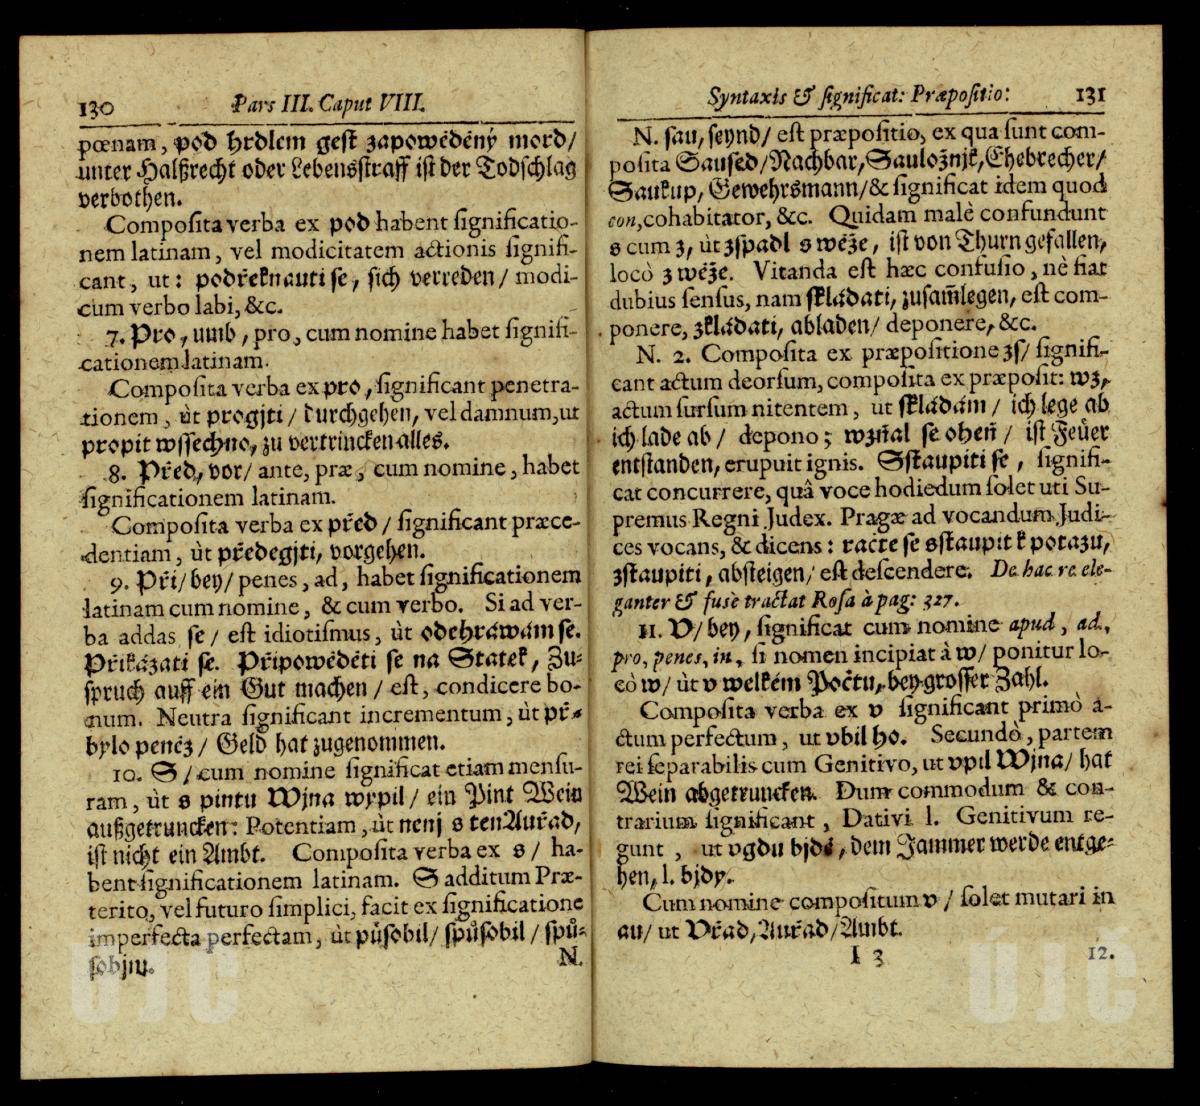 130 Pars III. Caput VIII.
pœnam, pod hrdlem gest zapowěděný mord/
unter Halßrecht oder Lebensstraff ist der Todschlag
verbothen.
Composita verba ex pod habent significatio-
nem latinam, vel modicitatem actionis signifi-
cant, ut: podřeknauti se, sich verreden/ modi-
cum verbo labi, &c.
7. Pro, umb, pro, cum nomine habet signifi-
cationem latinam.
Composita verba ex pro, significant penetra-
tionem, ùt progjti/ durchgehen, vel damnum, ut
propit wssechno, zu vertrincken alles.
8. Před, vor/ ante, præ, cum nomine, habet
significationem latinam.
Composita verba ex před/ significant præce-
dentiam, ùt předegjti, vorgehen.
9. Při/ bey/ penes, ad, habet significationem
latinam cum nomine, & cum verbo. Si ad ver-
ba addas se/ est idiotismus, ùt odehráwám se.
Přikázati se. Připowěděti se na Statek, Zu-
spruch auff ein Gut machen/ est, condicere bo-
num. Neutra significant incrementum, ùt při-
bylo peněz/ Geld hat zugenommen.
10. S/ cum nomine significat etiam mensu-
ram, ùt s pintu Wjna wypil/ ein Pint Wein
außgetruncken: Potentiam, ùt nenj s ten Auřad,
ist nicht ein Ambt. Composita verba ex s/ ha-
bent significationem latinam. S additum Præ-
terito, vel futuro simplici, facit ex significatione
imperfecta perfectam, ùt působil/ spůsobil/ spů-
sobjm.
N.
Syntaxis & significat: Præpositio: 131
N. sau, seynd/ est præpositio, ex qua sunt com-
posita Saused/ Nachbar, Sauložnjk, Ehebrecher/
Saukup, Gewehrsmann/ & significat idem quod
con, cohabitator, &c. Quidam malè confundunt
s cum z, ùt zspadl s wěže, ist von Thurn gefallen,
locò z wěže. Vitanda est hæc confusio, nè fiat
dubius sensus, nam skládati, zusam̃legen, est com-
ponere, zkládati, abladen/ deponere, &c.
N. 2. Composita ex præpositione zs/ signifi-
cant actum deorsum, composita ex præposit: wz,
actum sursum nitentem, ut skládám/ ich lege ab
ich lade ab/ depono; wzňal se oheň/ ist Feüer
entstanden, erupuit ignis. Sstaupiti se, signifi-
cat concurrere, quâ voce hodiedum solet uti Su-
premus Regni Judex. Pragæ ad vocandum Judi-
ces vocans, & dicens: račte se sstaupit k potazu,
zstaupiti, absteigen/ est descendere. De hac re ele-
ganter & fusè tractat Rosa à pag: 327.
11. V/ bey, significat cum nomine apud, ad,
pro, penes, in, si nomen incipiat à w/ ponitur lo-
cò w/ ùt v welkém Počtu, bey grosser Zahl.
Composita verba ex v significant primò a-
ctum perfectum, ut vbil ho. Secundò, partem
rei separabilis cum Genitivo, ut vpil Wjna/ hat
Wein abgetruncken. Dum commodum & con-
trarium significant, Dativi l. Genitivum re-
gunt, ut vgdu bjdě, dem Jammer werde entge-
hen, l. bjdy.
Cum nomine compositum v/ solet mutari in
au/ ut Vřad, Auřad/ Ambt.
I 3 12.